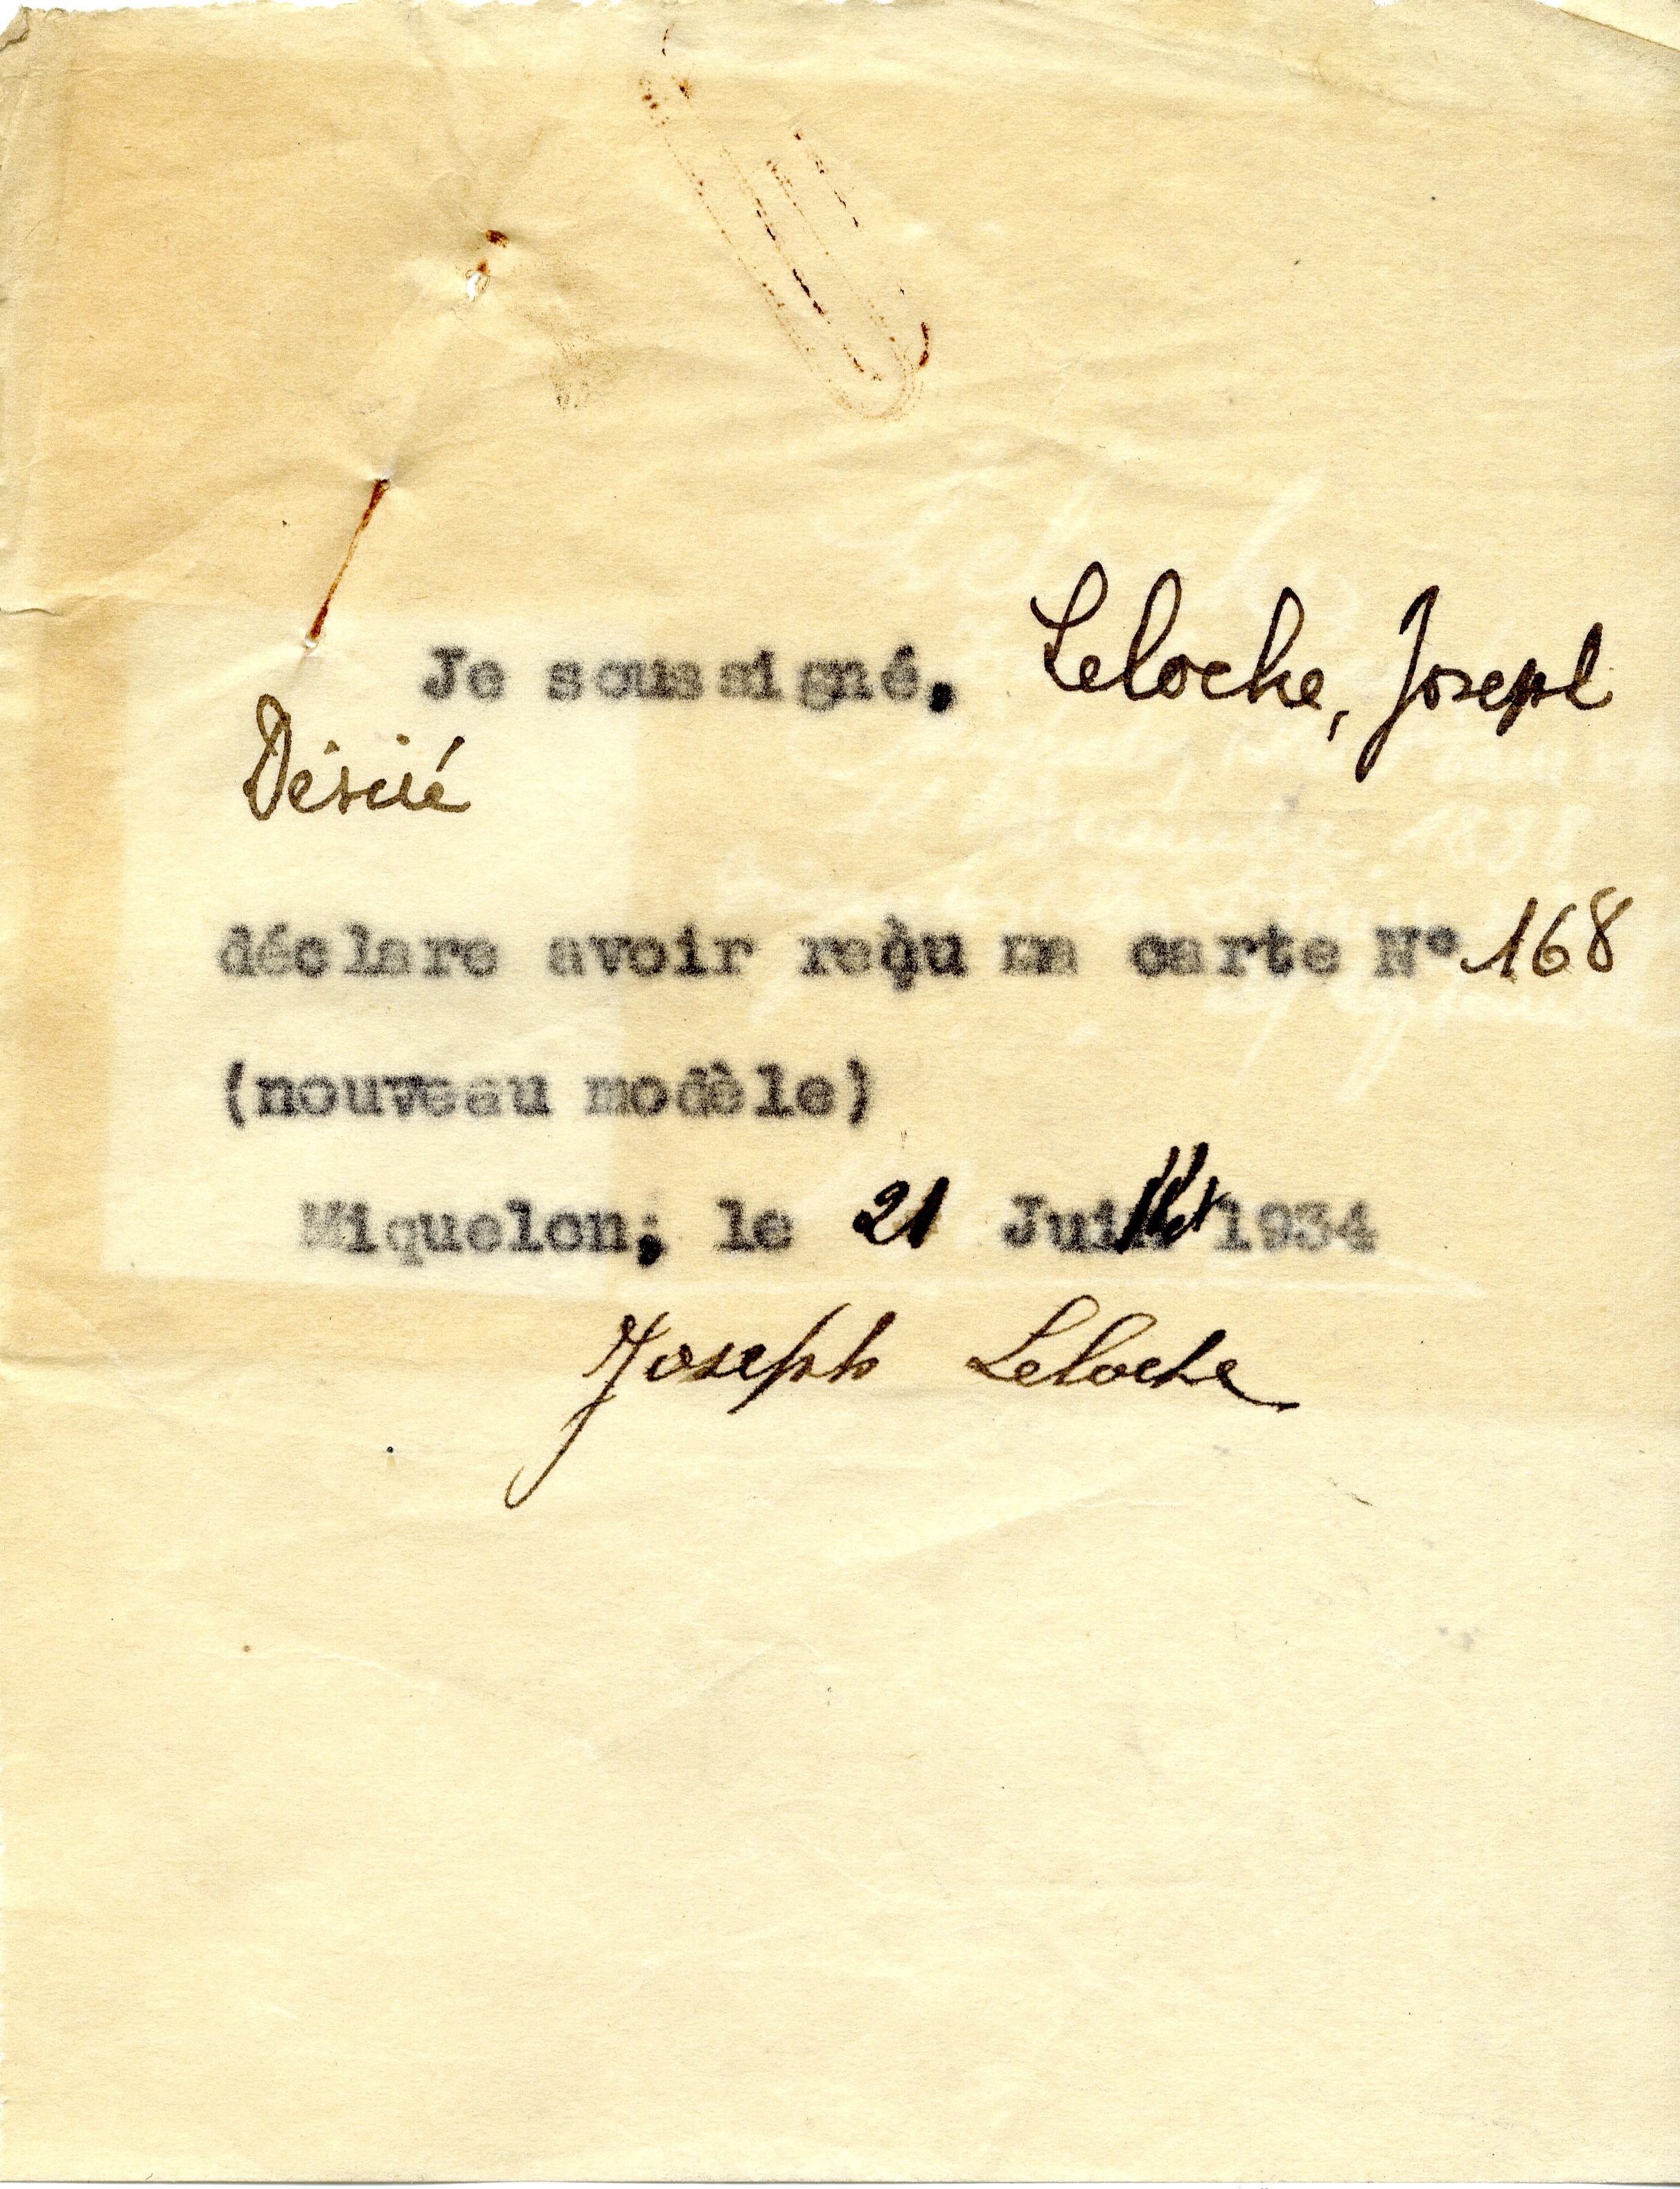 Je soussigné, Leloche, Joseph
Désiré
déclare avoir reçu ma carte N° 168
(nouveau modèle)
Miquelon; le 21 Juillet 1934
Joseph Leloche